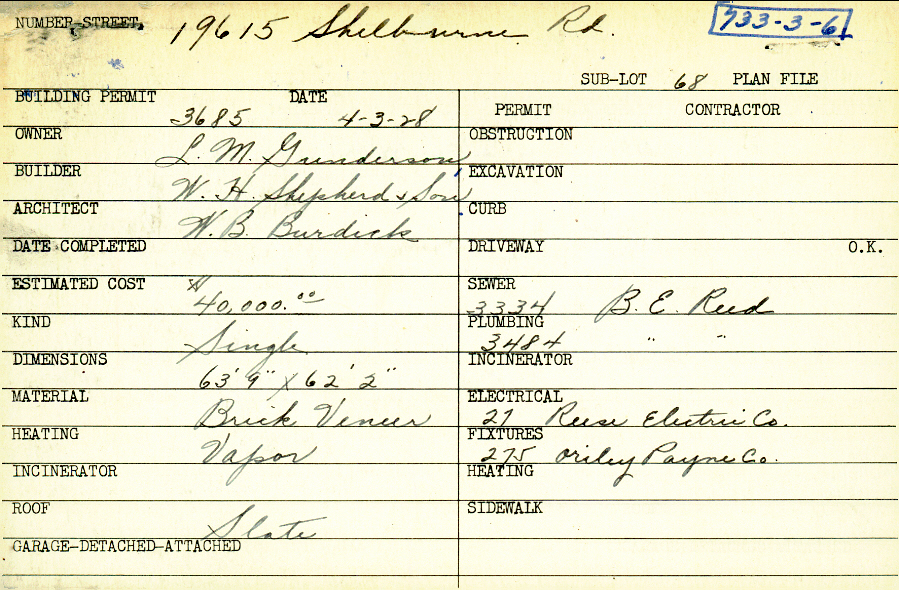 NUMBER-STREET, 19615 Shelburne Rd. 733-3-6
SUB-LOT 68 PLAN FILE
BUILDING PERMIT 3685 DATE 4-3-28
OWNER L. M. Gunderson
BUILDER W. H. Shepherd & Son
ARCHITECT W. B. Burdick
DATE COMPLETED
ESTIMATED COST $40,000.00
KIND Single
DIMENSIONS 63' 9" X 62' 2"
MATERIAL Brick Veneer
HEATING Vapor
INCINERATOR
ROOF Slate
GARAGE-DETACHED-ATTACHED
PERMIT CONTRACTOR
OBSTRUCTION
EXCAVATION
CURB
DRIVEWAY O.K.
SEWER 3334 B. E. Reed
PLUMBING 3484 " "
INCINERATOR
ELECTRICAL 27 Reese Electric Co.
FIXTURES 275 Payne Co.
HEATING
SIDEWALK